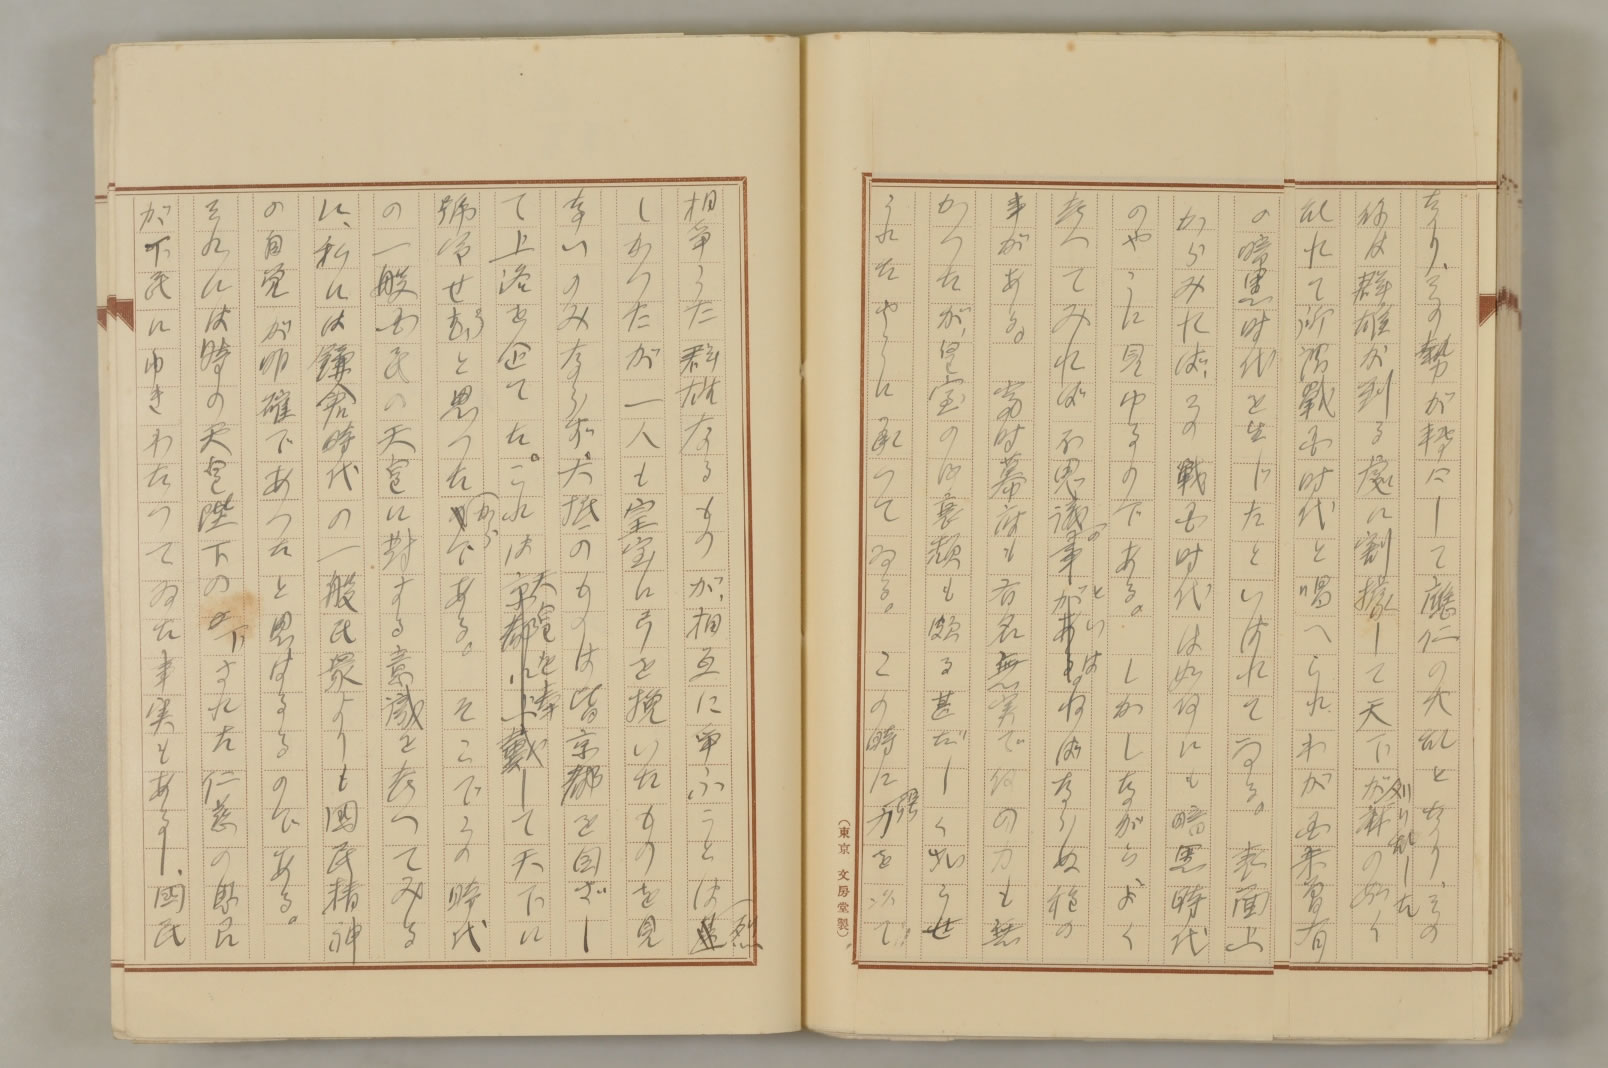 なり、その勢が悴にして應仁の大乱となり、その
後は群雄が到る處に割據して天下が刈り乱した
乱れて所謂戰国時代と唱へられ、わが国未曾有
の暗黒時代を生じたといはれてゐる。表面上
からみれば、この戦国時代は如何にも暗黒時代
のやうに見ゆるのである。しかしながらよく
考へてみれば不思議の事といはねばならぬ程の
事がある。當時幕府も有名無実で何の力も無
かつたが、皇室の御衰頽も頗る甚だしく在らせ
られたやうに承つてゐる。この時に方を以て
相争うた群雄なるものが、相互に争ふことは烈
しかつたが一人も皇室に弓を挽いたものを見
ないのみならず、大抵のものは皆京都を目ざし
て上洛を企てた。これは天皇を奉戴して天下に
號令せむと思つたからである。そこでこの時代
の一般国民の天皇に對する意識を考へてみる
に、私には鎌倉時代の一般民衆よりも國民精神
の自覚が明確であつたと思はるるのである。
それには時の天皇陛下の下された仁慈の
が下民にゆきわたつてゐた事実もあるし、国民
(東京 文房堂製)